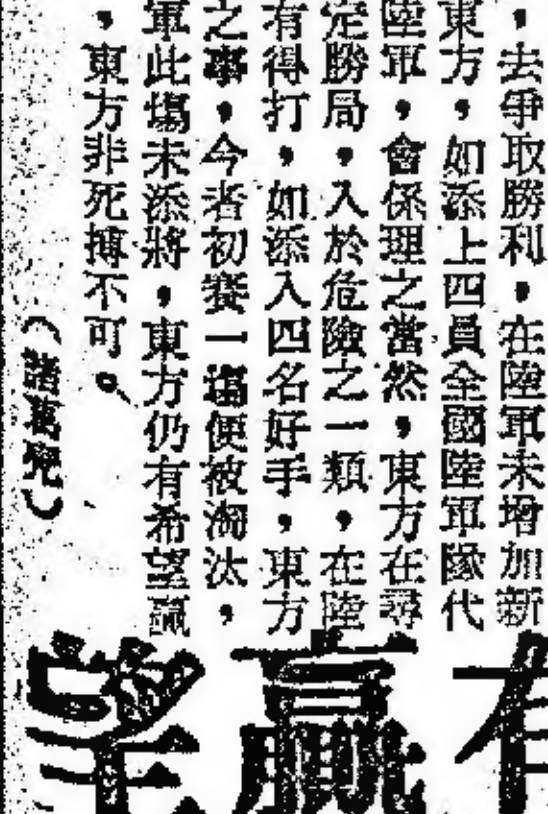 ，去爭取勝利，在陸軍未增加新
東方，如添上四員全國陸軍隊代
陸軍，會係理之當然，東方在尋
定勝局，入於危險之一類，在陸
有得打，如添入四名好手，東方
之事，今者初賽一場便被淘汰，
軍此場未添將，東方仍有希望贏
，東方非死搏不可。
（諸葛兜）
有
贏
望